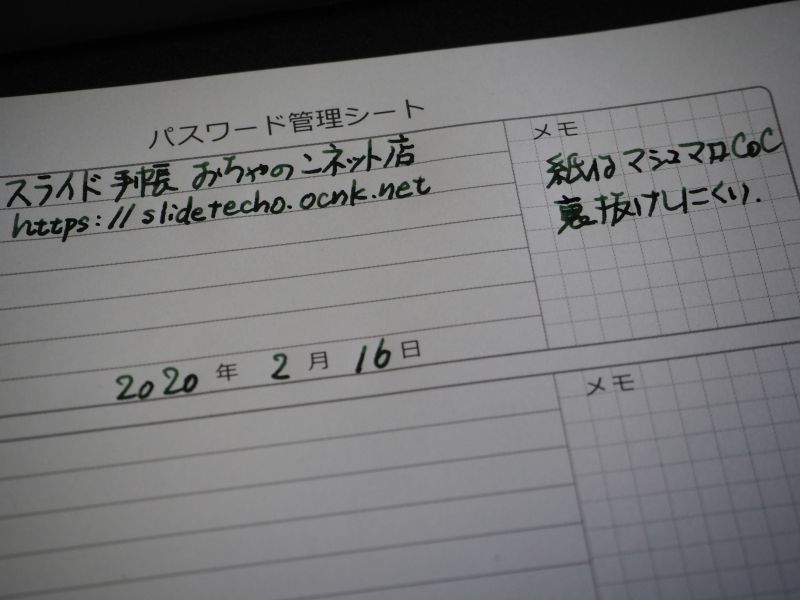 パスワード管理シート
スライド手帳 おちゃのこネット店
https://slidetecho.ocnk.net
メモ
紙はマシュマロCoC
裏抜けしにくい.
2020年2月16日
メモ